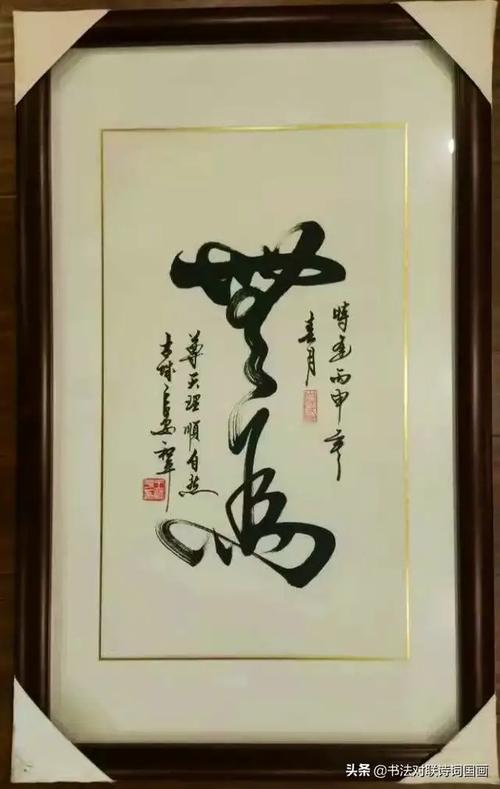 時逢丙申年
春月
無為
尊天理順自然
头条 @书法对联诗词国画